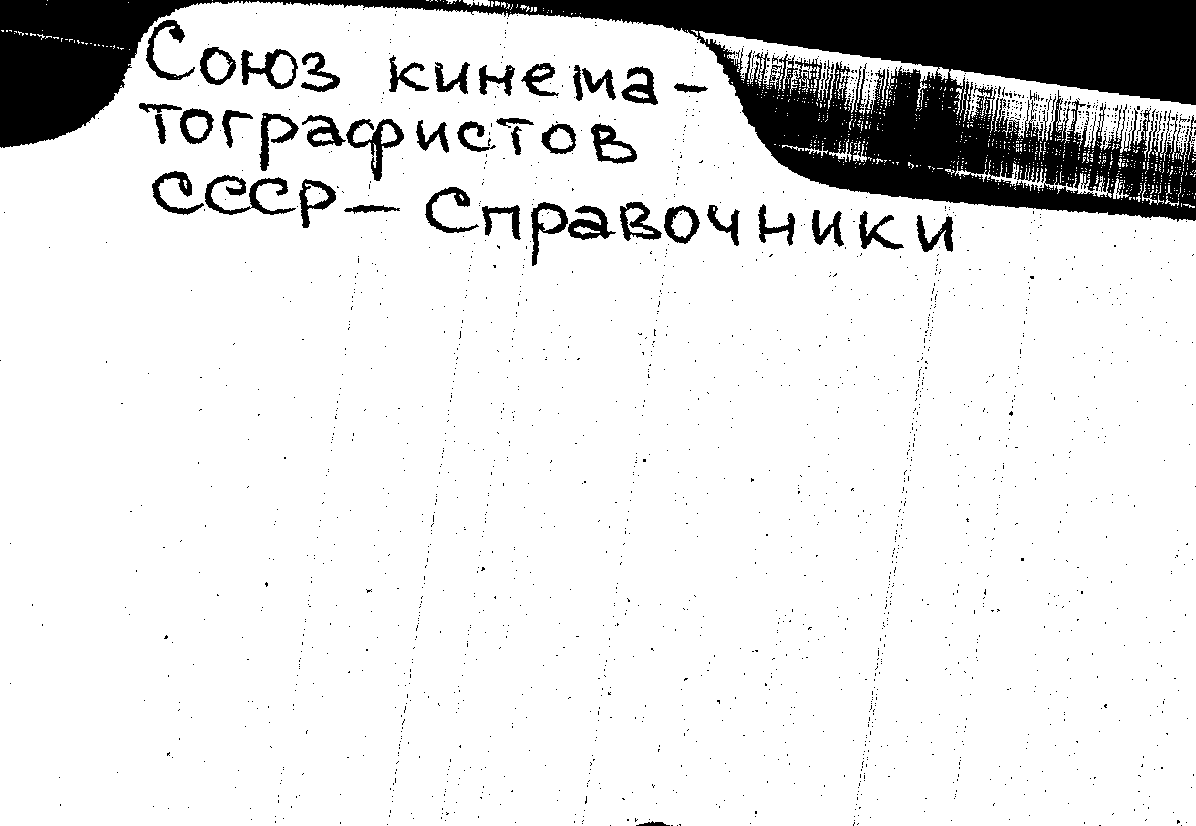 Союз кинема-
тографистов
СССР — Справочники